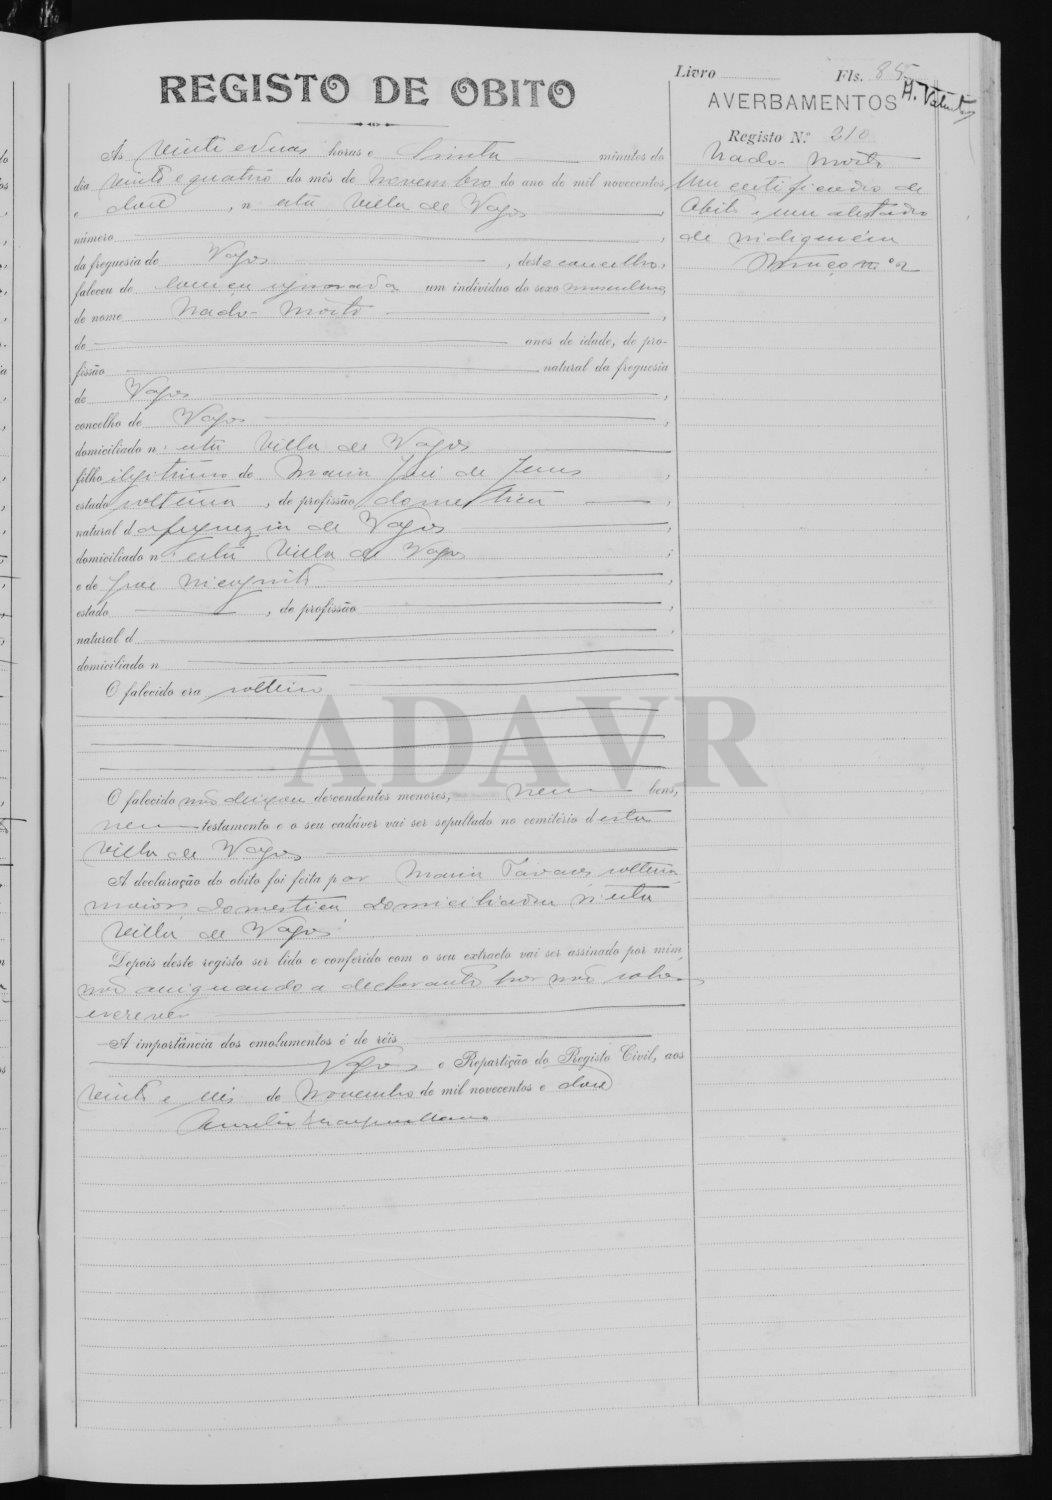 Livro Fls. 85
REGISTO DE OBITO
AVERBAMENTOS
Registo N.º 210
Nado-morto
Um certificado de
obito e um atestado
de indigencia
Maço n.º 2
Às vinte e duas horas e trinta minutos do
dia vinte e quatro do mês de Novembro do ano de mil novecentos
e doze, n esta Villa de Vagos,
número,
da freguesia de Vagos, deste concelho,
faleceu de doença ignorada um individuo do sexo masculino,
de nome Nado-Morto,
de anos de idade, de pro-
fissão natural da freguesia
de Vagos,
concelho de Vagos,
domiciliado n esta Villa de Vagos
filho ilegitimo de Maria José de Jesus,
estado solteira, de profissão domestica,
natural d a freguezia de Vagos,
domiciliado n esta Villa de Vagos;
e de pae incognito,
estado, de profissão,
natural d,
domiciliado n
O falecido era solteiro
ADAVR
O falecido não deixou descendentes menores, nem bens,
nem testamento e o seu cadáver vai ser sepultado no cemitério d esta
Villa de Vagos
A declaração do obito foi feita por Maria Tavares, solteira,
maior, domestica, domiciliada n'esta
Villa de Vagos.
Depois deste registo ser lido e conferido com o seu extracto vai ser assinado por mim,
não assignando a declarante por não saber
escrever
A importância dos emolumentos é de réis
Vagos e Repartição do Registo Civil, aos
vinte e seis de Novembro de mil novecentos e doze